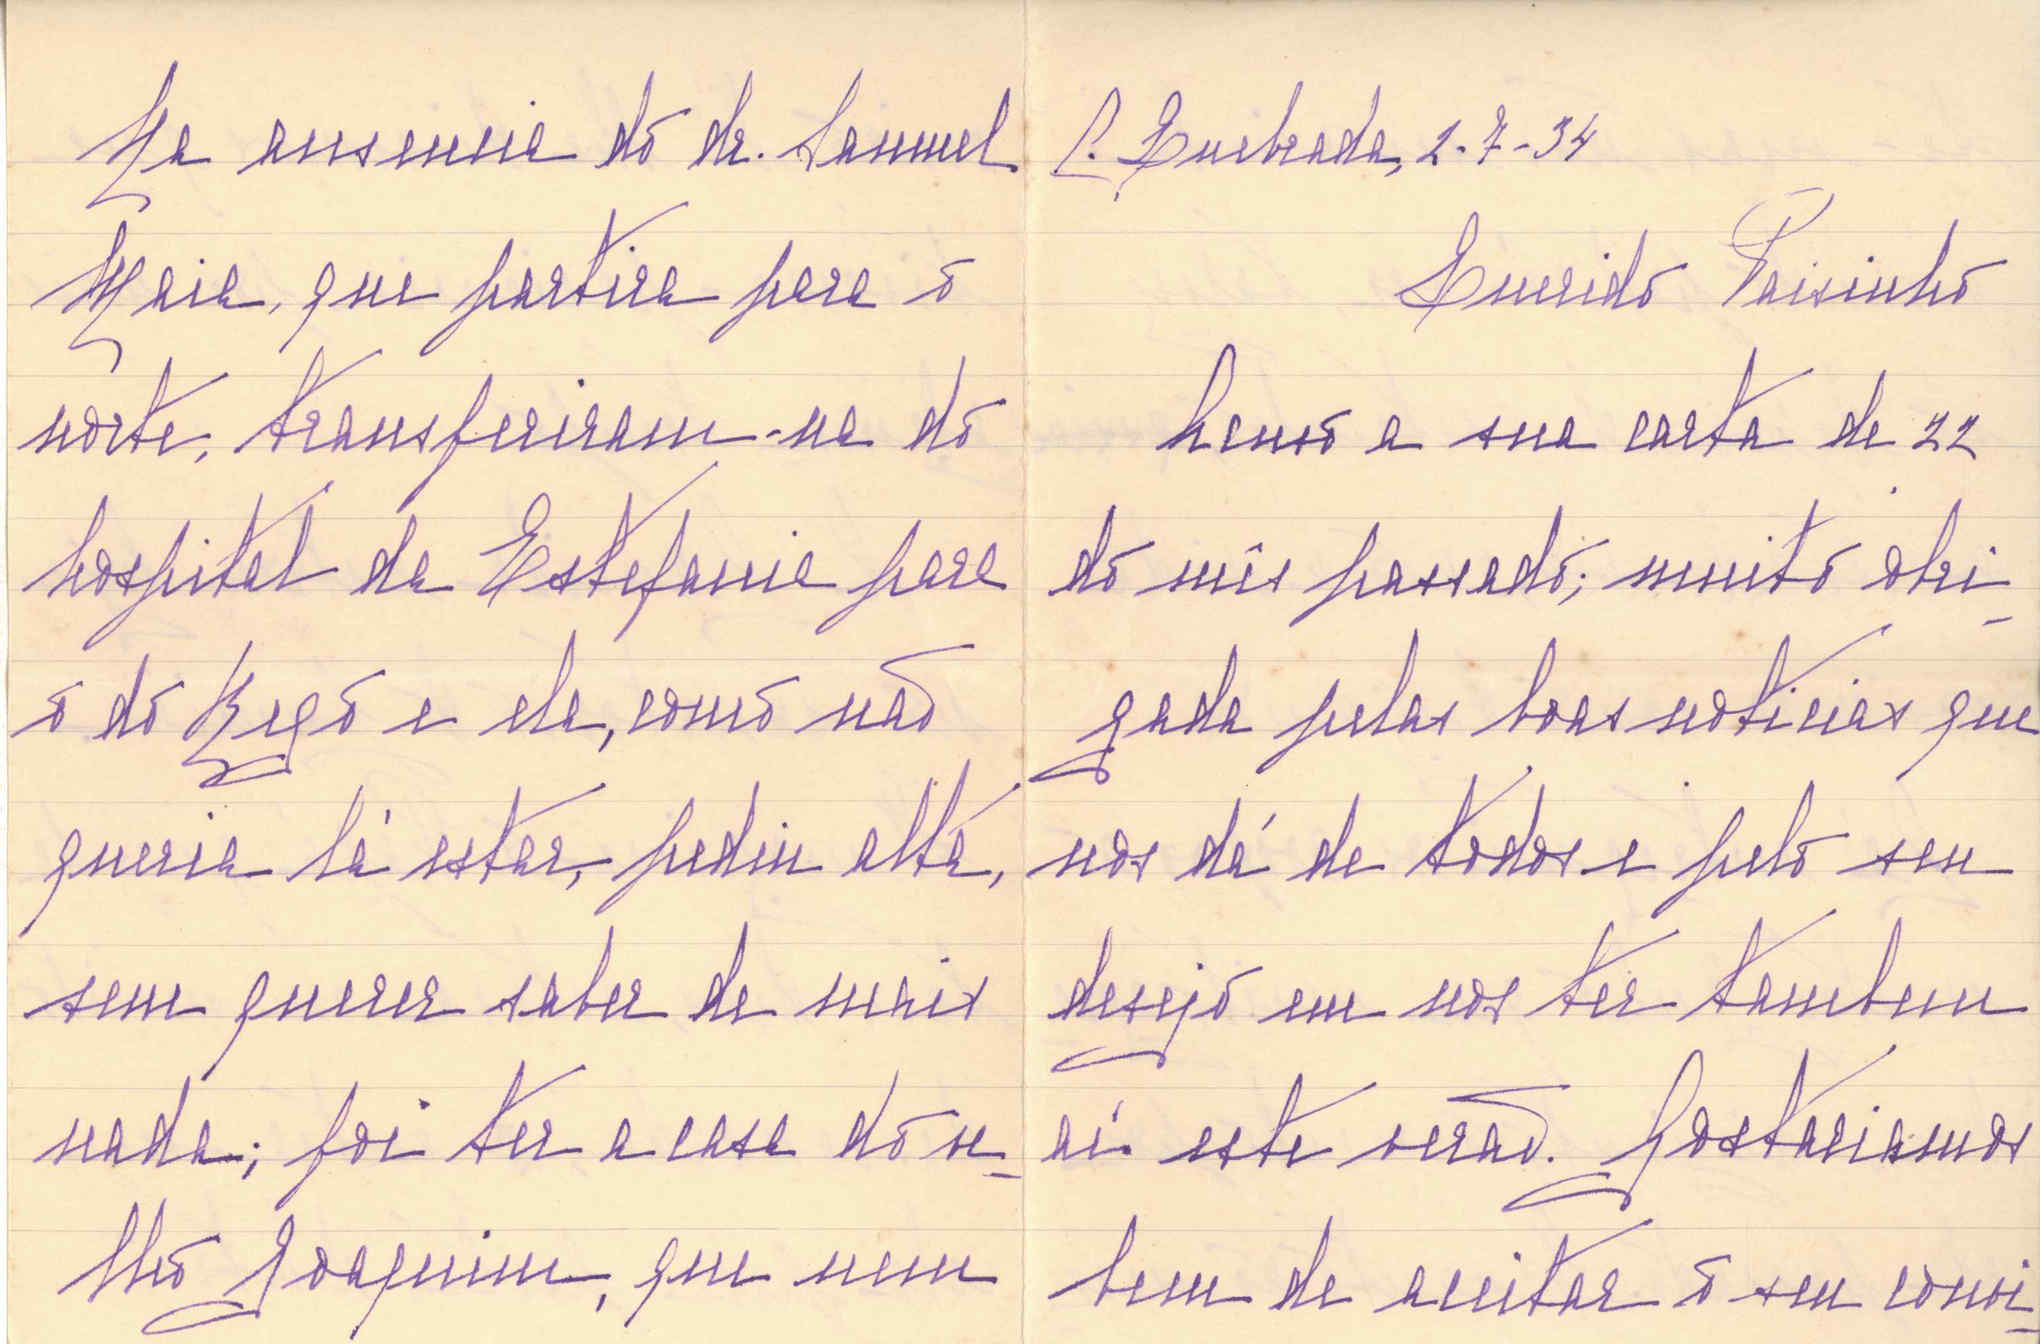 Na ausencia do dr. Samuel
Maia, que partira para o
norte, transferiram-na do
hospital da Estefania para
o do Rego e ela, como não
queria lá estar, pediu alta,
sem querer saber de mais
nada; foi ter a casa do ve-
lho Joaquim, que nem
C. Quebrada, 2-7-34
Querido Paisinho
Acuso a sua carta de 22
do mês passado; muito obri-
gada pelas boas noticias que
nos dá de todos e pelo seu
desejo em nos ter tambem
aí este verão. Gostariamos
bem de aceitar o seu convi-